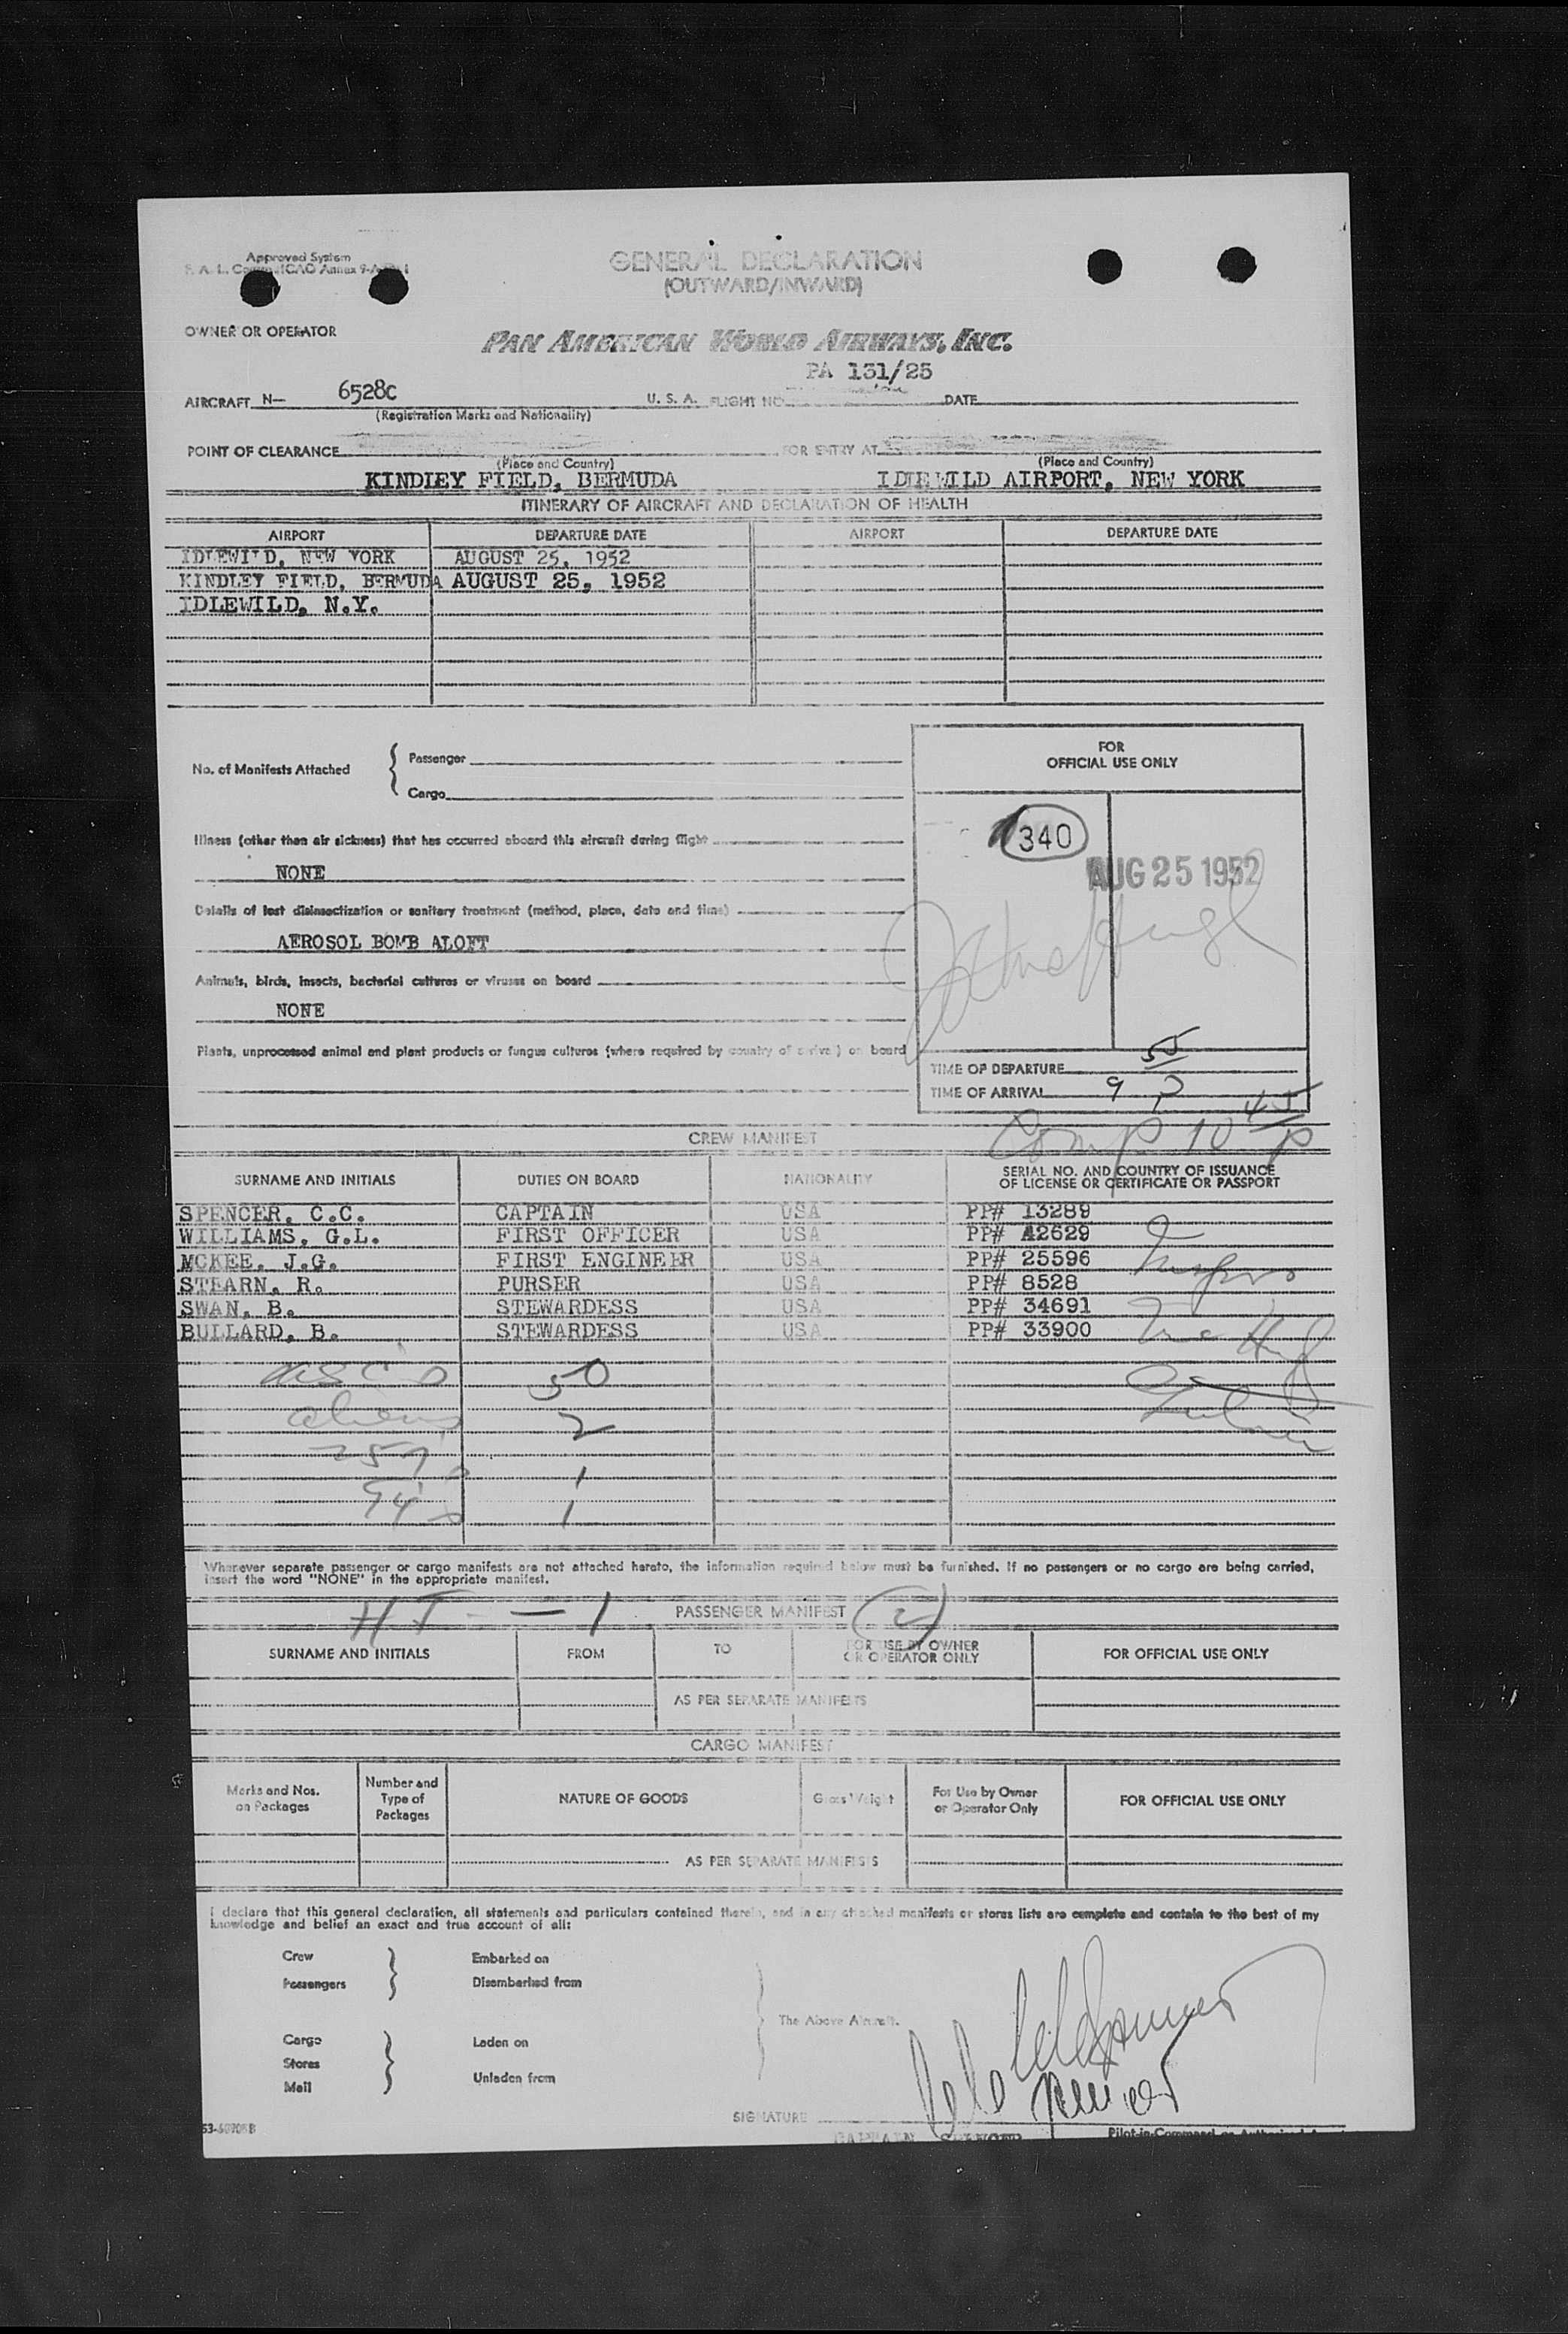 Approved System
GENERAL DECLARATION
(OUTWARD/INWARD)
OWNER OR OPERATOR
PAN AMERICAN WORLD AIRWAYS, INC.
PA 131/25
AIRCRAFT N- 6528C U. S. A. FLIGHT NO. DATE
(Registration Marks and Nationality)
POINT OF CLEARANCE FOR ENTRY AT
(Place and Country) (Place and Country)
KINDLEY FIELD, BERMUDA IDLEWILD AIRPORT, NEW YORK
ITINERARY OF AIRCRAFT AND DECLARATION OF HEALTH
AIRPORT DEPARTURE DATE AIRPORT DEPARTURE DATE
IDLEWILD, NEW YORK AUGUST 25, 1952
KINDLEY FIELD, BERMUDA AUGUST 25, 1952
IDLEWILD, N.Y.
No. of Manifests Attached
Passenger
Cargo
FOR
OFFICIAL USE ONLY
340
AUG 25 1952
Illness (other than air sickness) that has occurred aboard this aircraft during flight
NONE
Details of last disinsectization or sanitary treatment (method, place, date and time)
AEROSOL BOMB ALOFT
Animals, birds, insects, bacterial cultures or viruses on board
NONE
Plants, unprocessed animal and plant products or fungus cultures (where required by country of arrival) on board
TIME OF DEPARTURE
TIME OF ARRIVAL 9 55 P
Comp 10 45 P
CREW MANIFEST
SURNAME AND INITIALS DUTIES ON BOARD NATIONALITY SERIAL NO. AND COUNTRY OF ISSUANCE
OF LICENSE OR CERTIFICATE OR PASSPORT
SPENCER, C.C. CAPTAIN USA PP# 13289
WILLIAMS, G.L. FIRST OFFICER USA PP# A2629
MCKEE, J.G. FIRST ENGINEER USA PP# 25596
STEARN, R. PURSER USA PP# 8528
SWAN, B. STEWARDESS USA PP# 34691
BULLARD, B. STEWARDESS USA PP# 33900
USC's 50
aliens 2
257's 1
94's 1
Whenever separate passenger or cargo manifests are not attached hereto, the information required below must be furnished. If no passengers or no cargo are being carried,
insert the word "NONE" in the appropriate manifest.
HT - - 1 PASSENGER MANIFEST (2)
SURNAME AND INITIALS FROM TO FOR USE BY OWNER
OR OPERATOR ONLY FOR OFFICIAL USE ONLY
AS PER SEPARATE MANIFESTS
CARGO MANIFEST
Marks and Nos.
on Packages
Number and
Type of
Packages
NATURE OF GOODS
Gross Weight
For Use by Owner
or Operator Only
FOR OFFICIAL USE ONLY
AS PER SEPARATE MANIFESTS
I declare that this general declaration, all statements and particulars contained therein, and in any attached manifests or stores lists are complete and contain to the best of my
knowledge and belief an exact and true account of all:
Crew
Passengers
Embarked on
Disembarked from
The Above Aircraft.
Cargo
Stores
Mail
Laden on
Unladen from
SIGNATURE
CAPTAIN SPENCER Pilot-in-Command or